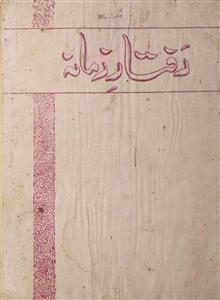 رفتارِ زمانہ